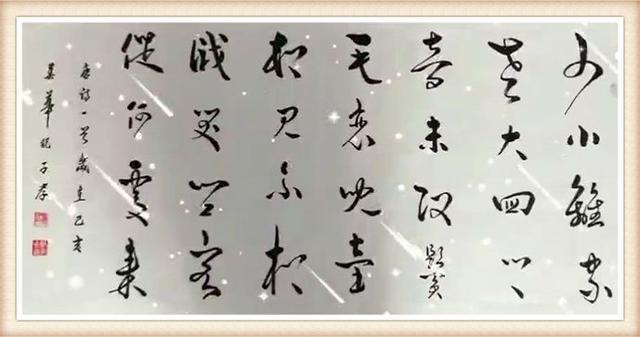 少小離家
老大回鄉
音未改鬢
毛衰兒童
相見不相
識笑問客
從何處來
唐詩一首歲在己亥
華